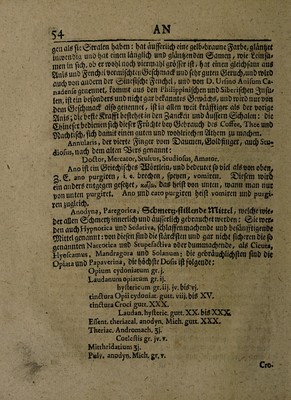 54 AN
gen als sie Stralen haben: hat äusserlich eine gelb-braune Farbe, gläntzet
inwendig und hat einen länglich und gläntzenden Samen, wie Leinsa-
men in sich, ob er wohl noch viermahl grösser ist, hat einen gleichsam aus
Anis und Fenchel vermischten Geschmack und sehr guten Geruch, und wird
auch von andern der Sinesische Fenchel, und von D. Ursino Anisum Ca-
nadense genennet, kommt aus den Philippinischen und Siberischen Insu-
len, ist ein besonders und nicht gar bekanntes Gewächs, und wird nur von
dem Geschmack also genennet, ist in allen weit kräfftiger als der vorige
Anis; die beste Krafft bestehet in den Zancken und äussern Schalen: die
Chineser bedienen sich dieser Früchte bey Gebrauch des Coffee, Thee und
Nachtisch, sich damit einen guten und wohlriechen Athem zu machen.
Annularis, der vierte Finger vom Daumen, Goldfinger, auch Stu-
diosus, nach dem alten Vers genannt:
Doctor, Mercator, Stultus, Studiosus, Amator.
Ano ist ein Griechisches Wörtlein, und bedeutet so viel als von oben,
Z. E. ano purgiren, i. e. brechen, speyen, vomiren. Diesem wird
ein anders entgegen gesetzet, das heist von unten, wann man nur
von unten purgiret. Ano und cato purgiren heist vomiren und purgi-
ren zugleich.
Anodyna, Paregorica, Schmertz-stillende Mittel, welche wie-
der aller Schmertz innerlich und äusserlich gebrauchet werden: Sie wer-
den auch Hypnotica und Sedativa, schlaffenmachende und besänfftigende
Mittel genannt: von diesen sind die stärcksten und gar nicht sicheren die so
genannten Narcotica und Stupefactiva oder dummachende, als Cicuta,
Hyoscamus, Mandragora und Solanum; die gebräuchlichsten sind die
Opiata und Papaverina, die höchste Dosis ist folgende:
Opium cydoniatum gr. j.
Laudanum opiatum gr. iij.
hystericum gr. iij. jv. bis vj.
tinctura Opii cydoniat. gutt. viij. bis XV.
tinctura Croci gutt. XXX.
Laudan. hysteric. gutt. XX. bis XXX.
Essent. theriacal. anodyn. Mich. gutt. XXX.
Theriac. Andromach. ʒj.
Cœlestis gr. jv. v.
Mithridatium ʒj.
Pulv. anodyn. Mich. gr. v.
Cro-